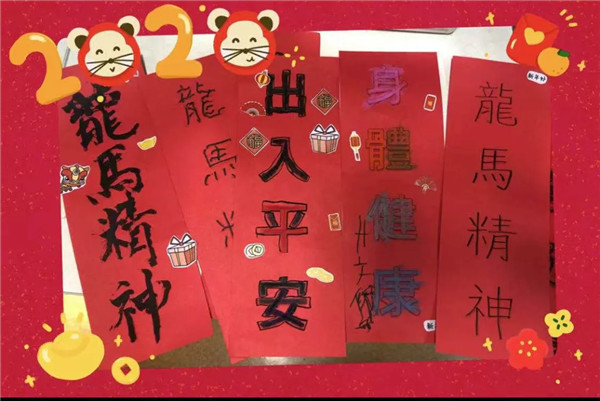 2020
龍馬精神
龍馬
出入平安
身體健康
龍馬精神